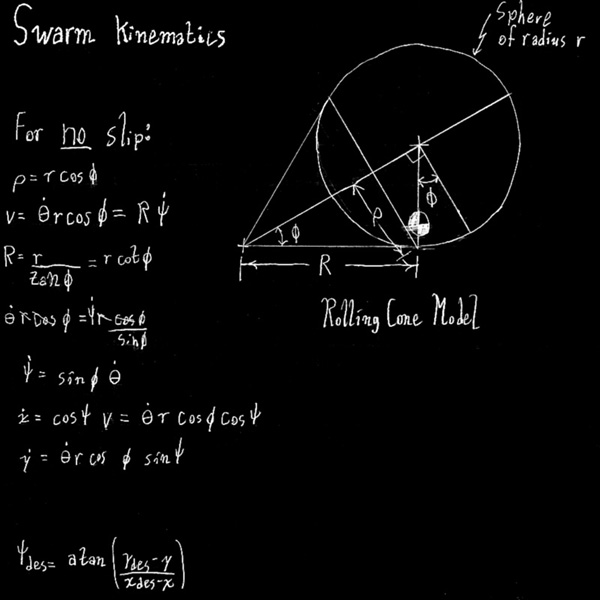 Swarm Kinematics
Sphere
of radius r
For no slip:
ρ = r cos ϕ
v = θ̇ r cos ϕ = R ψ̇
R = r/tan ϕ = r cot ϕ
θ̇ r cos ϕ = ψ̇ r cos ϕ/sin ϕ
ψ̇ = sin ϕ θ̇
ẋ = cos ψ v = θ̇ r cos ϕ cos ψ
ẏ = θ̇ r cos ϕ sin ψ
ψdes = atan (ydes - y/xdes - x)
ϕ
ρ
ϕ
R
Rolling Cone Model